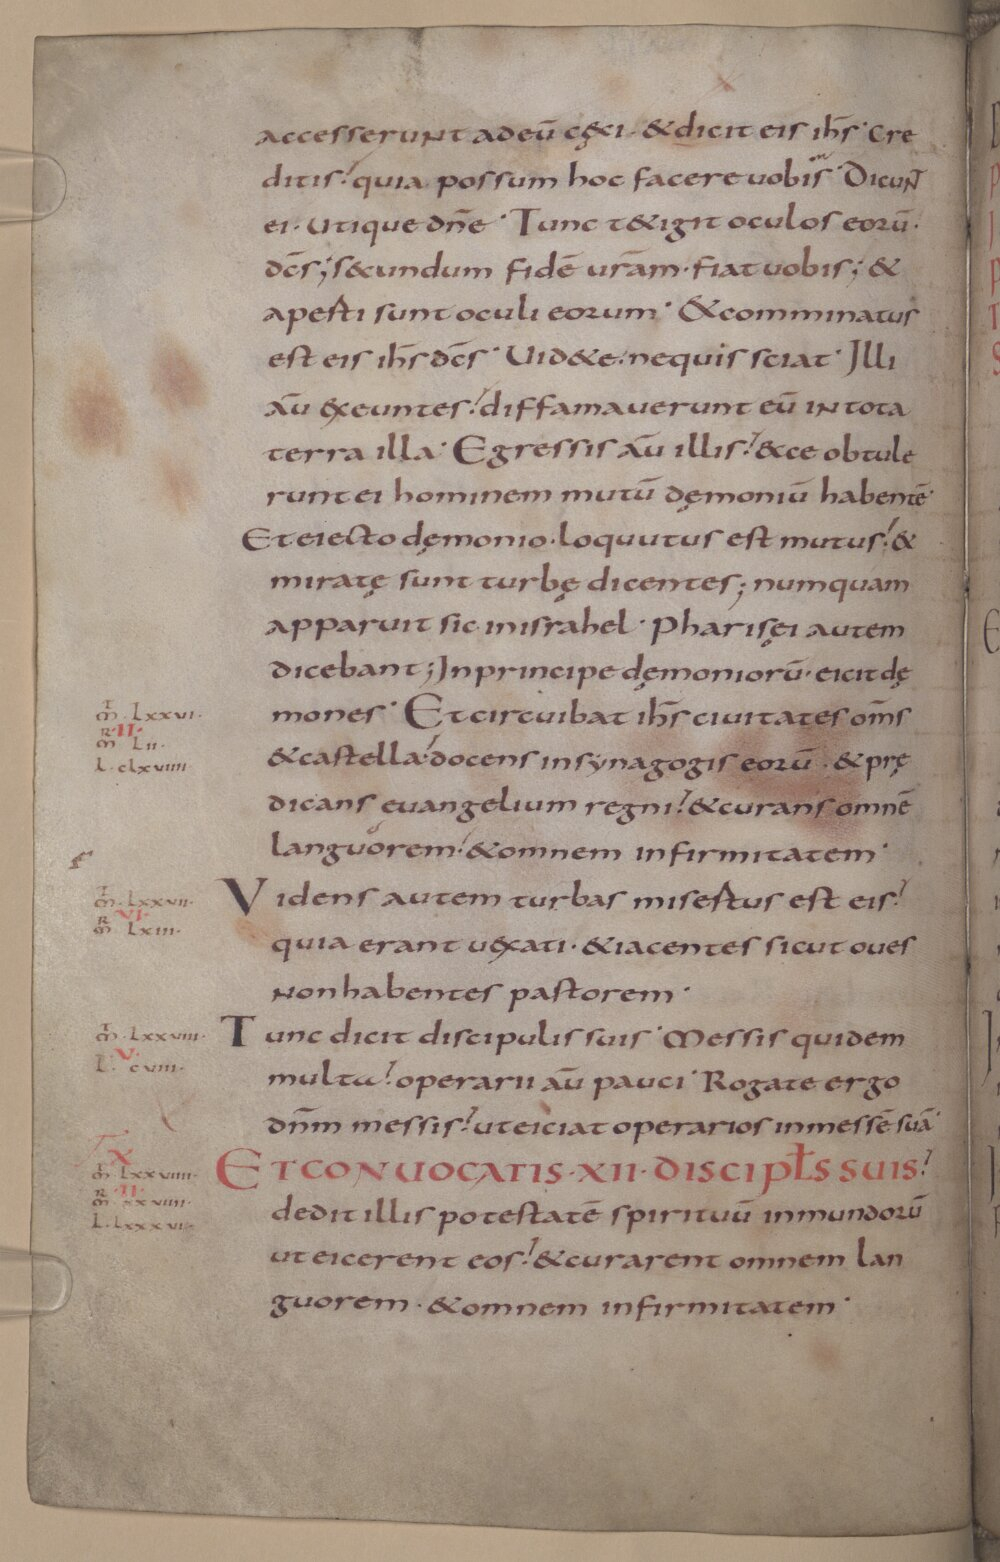 accesserunt ad eū cęci · & dicit eis ih̄s · Cre
ditis · quia possum hoc facere uobis · Dicunt
ei · Utique dn̄e · Tunc t&igit oculos eorū ·
dc̄s ; s&cundum fidē ur̄am · fiat uobis ; &
aperti sunt oculi eorum · & comminatus
est eis ih̄s dc̄s · Uid&e · nequis sciat · Illi
aū exeuntes · diffamauerunt eū in tota
terra illa · Egressis aū illis · &ce obtule
runt ei hominem mutū dęmoniū habentē ·
Et eiecto dęmonio · loquutus est mutus · &
miratę sunt turbę dicentes ; numquam
apparuit sic in israhel · Pharisęi autem
dicebant ; In principe dęmoniorū · eicit dę
m̄ · Lxxvi ·
R · II ·
m̄ Lii ·
L · clxviiii
mones · Et circuibat ih̄s ciuitates om̄s
& castella · docens in synagogis eorū · & prę
dicans euangelium regni · & curans omnē
languorem · & omnem infirmitatem ·
m̄ · Lxxvii ·
R VI ·
m̄ Lxiii ·
Videns autem turbas misertus est eis ·
quia erant uexati · & iacentes sicut oues
non habentes pastorem ·
m̄ · Lxxviii ·
V ·
L · cviii ·
Tunc dicit discipulis suis · Messis quidem
multa · operarii aū pauci · Rogate ergo
dn̄m messis · ut eiciat operarios in messē suā ·
X
m̄ · Lxxviiii ·
R · II ·
m̄ · xxviiii ·
L · Lxxxvi ·
ET CONUOCATIS · XII · DISCIPL̄S SUIS ·
dedit illis potestatē spirituū inmundorū
ut eicerent eos · & curarent omnem lan
guorem · & omnem infirmitatem ·